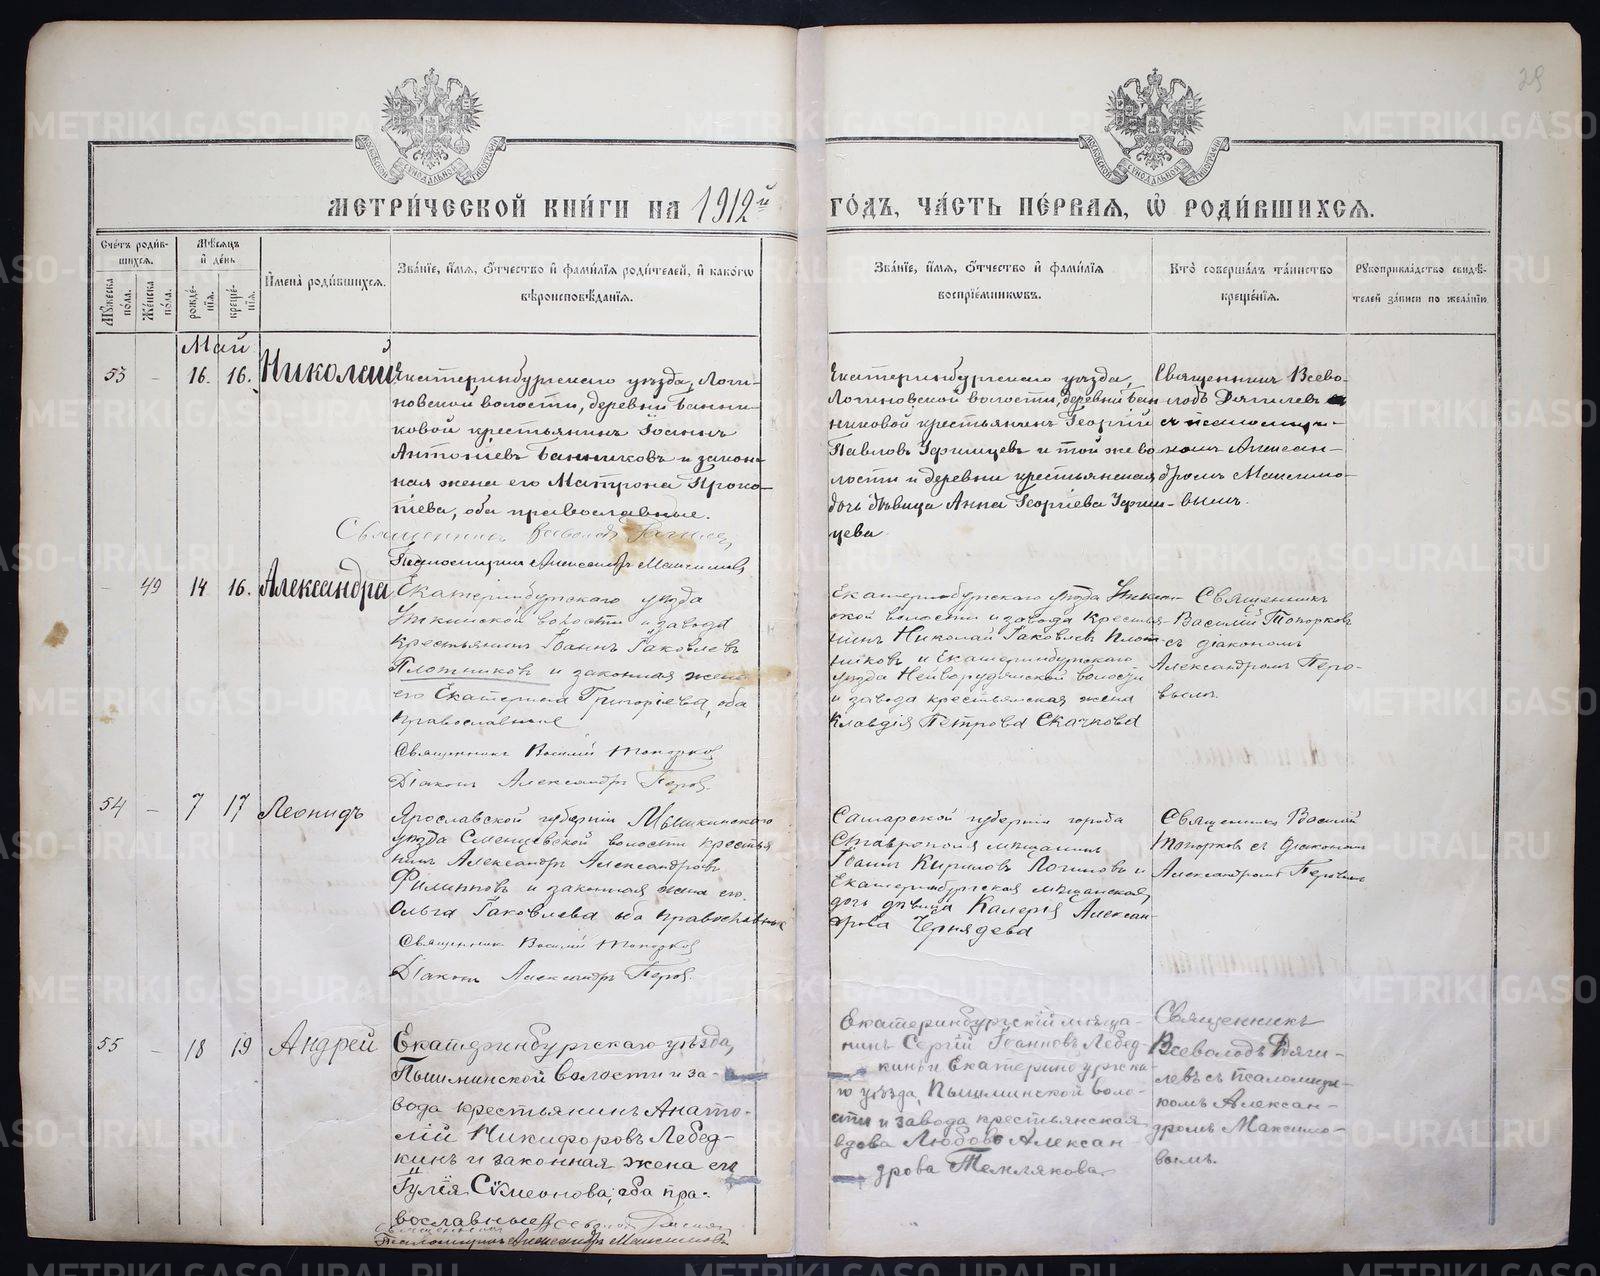 29
МЕТРИ́ЧЕСКОЙ КНИ́ГИ НА 1912й ГО́ДЪ, ЧА́СТЬ ПЕ́РВАЯ, Ѡ РОДИ́ВШИХСЯ.
Сче́тъ роди́в-
шихся.
Мꙋ́жеска по́ла.
Же́нска по́ла.
Мѣ́сяцъ
и҆ де́нь
рожде́-
нїя.
креще́-
нїя.
И҆мена̀ роди́вшихся.
Зва́нїе, и҆́мя, ѻ҆́тчество и҆ фами́лїя роди́телей, и҆ како́гѡ
вѣроисповѣ́данїя.
Зва́нїе, и҆́мя, ѻ҆́тчество и҆ фами́лїя
воспрїе́мникѡвъ.
Кто̀ соверша́лъ та́инство
креще́нїя.
Рꙋкоприкла́дство свидѣ́-
телей за́писи по жела́нїю
Май
53 - 16. 16. Николай
Екатеринбургскаго уѣзда, Логи-
новской волости, деревни Банни-
ковой крестьянинъ Іоаннъ
Антоніевъ Банниковъ и закон-
ная жена его Матрона Проко-
піева, оба православные.
Священникъ Всеволодъ Дягилев
Псаломщикъ Александръ Максимовъ
Екатеринбургскаго уѣзда,
Логиновской волости, деревни Бан
никовой крестьянинъ Георгій
Павловъ Уфимцевъ и той же во
лости и деревни крестьянская
дочь дѣвица Анна Георгіева Уфим-
цева
Священникъ Всево-
лодъ Дягилевъ
съ псаломщи-
комъ Алексан-
дромъ Максимо-
вымъ.
- 49 14 16. Александра
Екатеринбургскаго уѣзда
Уткинской волости и завода
крестьянинъ Іоаннъ Іаковлевъ
Плотниковъ и законная жена
его Екатерина Григоріева, оба
православные
Священникъ Василій Топорков
Діаконъ Александръ Перов.
Екатеринбургскаго уѣзда Уткин-
ской волости и завода крестья-
нинъ Николай Іаковлевъ Плот-
никовъ и Екатеринбургскаго
уѣзда Нейворудянской волости
и завода крестьянская жена
Клавдія Петрова Скачкова
Священникъ
Василій Топорковъ
съ діакономъ
Александромъ Перо-
вымъ.
54 - 7 17 Леонидъ
Ярославской губерніи Мышкинскаго
уѣзда волости крестья
нинъ Александръ Александровъ
Филипповъ и законная жена его
Ольга Іаковлева оба православные
Священникъ Василій Топорков
Діаконъ Александръ Перов.
Самарской губерніи города
Ставрополя мѣщанинъ
Іоаннъ Кириловъ Логиновъ и
Екатеринбургская мѣщанская
дочь дѣвица Калерія Алексан-
дрова Чернядева
Священникъ Василій
Топорковъ съ діакономъ
Александромъ Перовымъ
55 - 18 19 Андрей
Екатеринбургскаго уѣзда,
Пышминской волости и за-
вода, крестьянинъ Анато-
лій Никифоровъ Лебед-
кинъ и законная жена его
Іулія Сѵмеонова; оба пра-
вославные
Священникъ Всеволодъ Дягилев
Псаломщикъ Александръ Максимовъ
Екатеринбургскій мѣща-
нинъ Сергій Іоанновъ Лебед-
кинъ и Екатеринбургска-
го уѣзда, Пышминской воло-
сти и завода крестьянская
вдова Любовь Алексан
дрова Теплякова.
Священникъ
Всеволодъ Дяги-
левъ съ псаломщи-
комъ Алексан-
дромъ Максимо-
вымъ.
METRIKI.GASO-URAL.RU